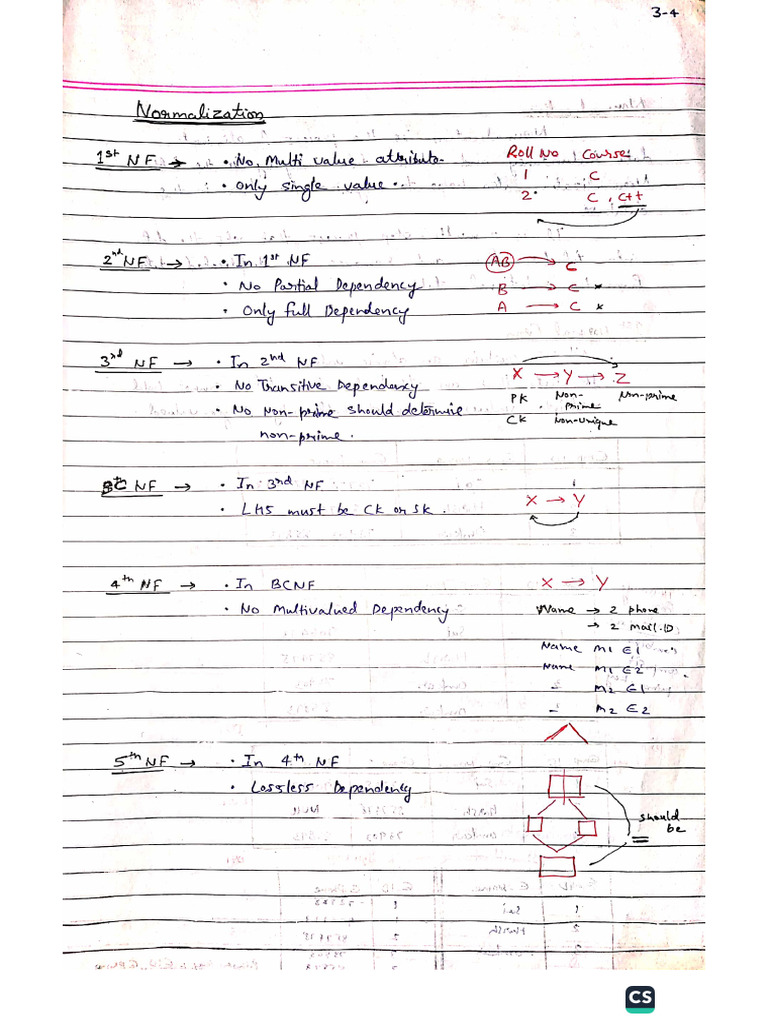 3-4
Normalization
1st NF → • No Multi value attribute. Roll No Course
1 C
• only single value. 2 C, C++
2nd NF → • In 1st NF AB → C
• No Partial Dependency B → C ×
• Only full Dependency A → C ×
3rd NF → • In 2nd NF
• No Transitive Dependency X → Y → Z
PK Non-prime Non-prime
• No Non-prime should determine
CK Non-unique
non-prime.
BC NF → • In 3rd NF
X → Y
• LHS must be CK or SK.
4th NF → • In BCNF X → Y
• No Multivalued Dependency Name → 2 phone
→ 2 mail.ID
Name M1 E1
Name M1 E2
M2 E1
M2 E2
5th NF → • In 4th NF
• Lossless Dependency
should
be
=
CS